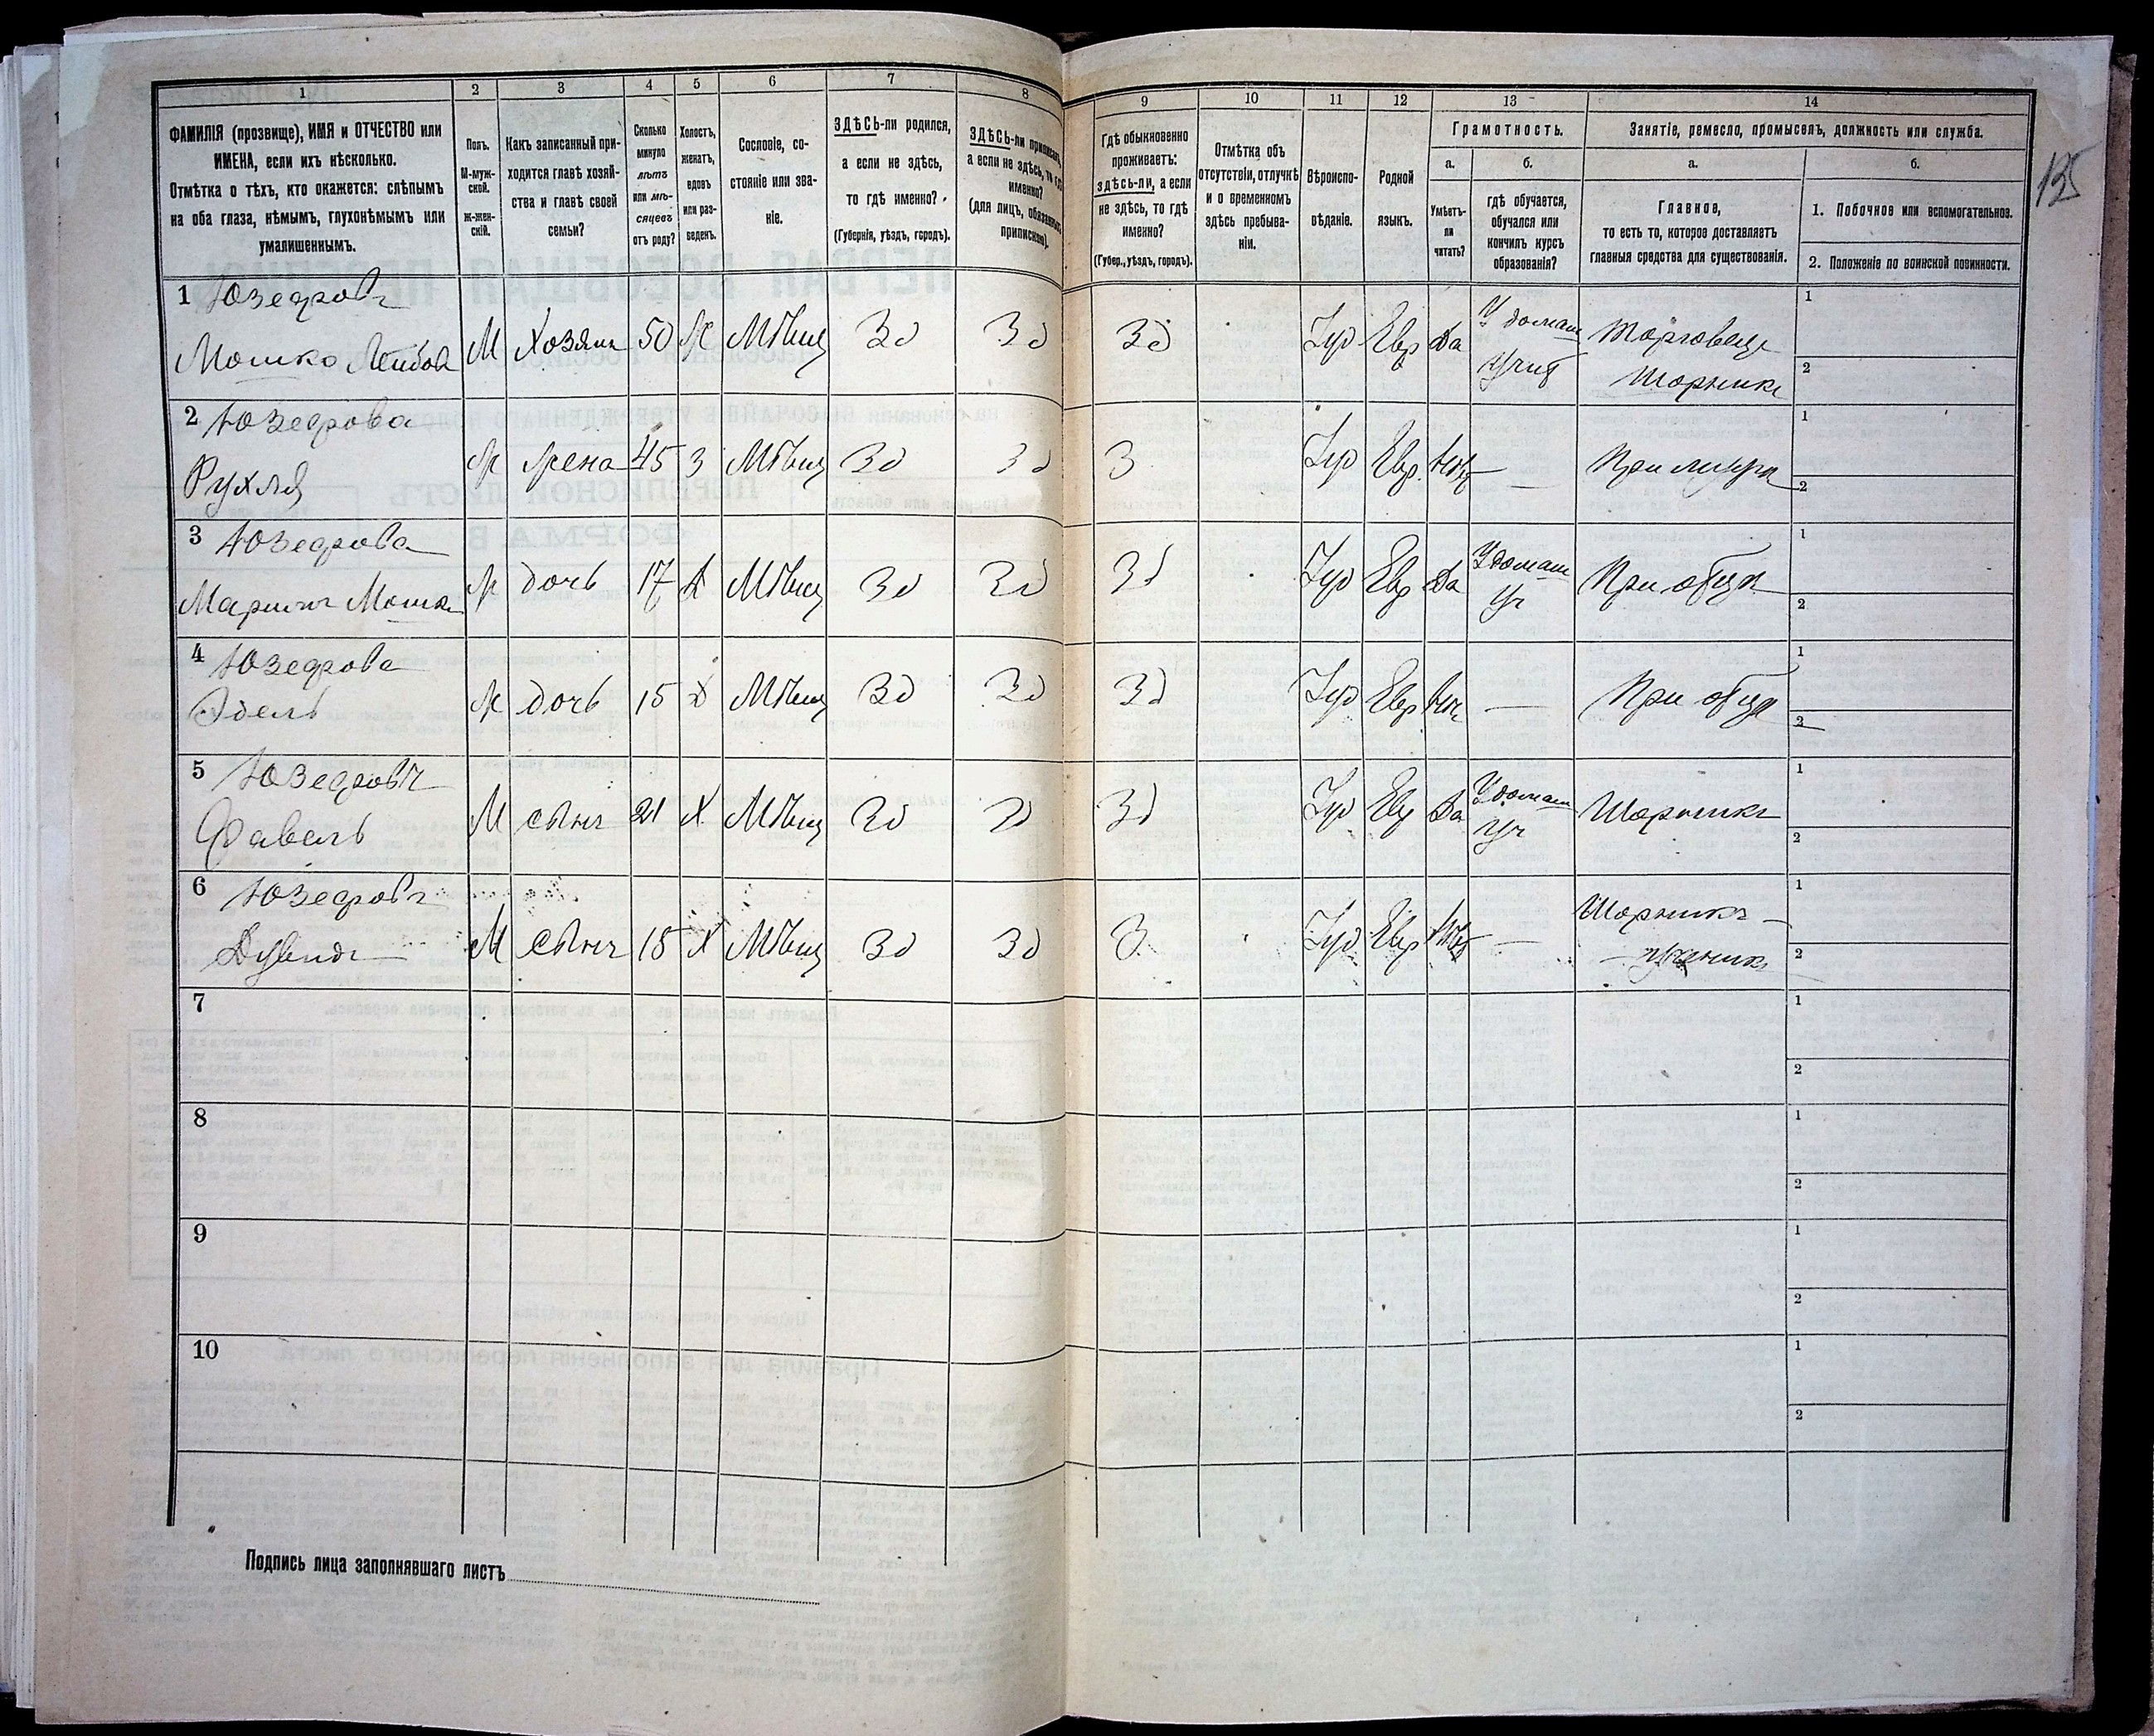 1
2
3
4
5
6
7
8
9
10
11
12
13
14
ФАМИЛІЯ (прозвище), ИМЯ и ОТЧЕСТВО или
ИМЕНА, если ихъ нѣсколько.
Отмѣтка о тѣхъ, кто окажется: слѣпымъ
на оба глаза, нѣмымъ, глухонѣмымъ или
умалишеннымъ.
Полъ.
М-муж-
ской.
Ж-жен-
скій.
Какъ записанный при-
ходится главѣ хозяй-
ства и главѣ своей
семьи?
Сколько
минуло
лѣтъ
или мѣ-
сяцевъ
отъ роду?
Холостъ,
женатъ,
вдовъ
или раз-
веденъ.
Сословіе, со-
стояніе или зва-
ніе.
ЗДѢСЬ-ли родился,
а если не здѣсь,
то гдѣ именно?
(Губернія, уѣздъ, городъ).
ЗДѢСЬ-ли приписанъ,
а если не здѣсь, то гдѣ
именно?
(для лицъ, обязанныхъ
припискою).
Гдѣ обыкновенно
проживаетъ:
здѣсь-ли, а если
не здѣсь, то гдѣ
именно?
(Губер., уѣздъ, городъ).
Отмѣтка объ
отсутствіи, отлучкѣ
и о временномъ
здѣсь пребыва-
ніи.
Вѣроиспо-
вѣданіе.
Родной
языкъ.
Грамотность.
а.
б.
Умѣетъ-
ли
читать?
гдѣ обучается,
обучался или
кончилъ курсъ
образованія?
Занятіе, ремесло, промыселъ, должность или служба.
а.
б.
Главное,
то есть то, которое доставляетъ
главныя средства для существованія.
1. Побочное или вспомогательное.
2. Положеніе по воинской повинности.
135
1 Юзефовъ
Мошко Лейбов М Хозяин 50 Ж Мѣщ Зд Зд Зд Іуд Евр Да У домаш учит Торговецъ Шорникъ 1 2
2 Юзефова
Рухля Ж жена 45 З Мѣщ Зд Зд З Іуд Евр нѣт — При мужѣ 1 2
3 Юзефова
Мошк Ж дочь 17 Д Мѣщ Зд Зд Зд Іуд Евр Да У домаш Уч При отцѣ 1 2
4 Юзефова
Эдель Ж дочь 15 Д Мѣщ Зд Зд Зд Іуд Евр нѣт — При отцѣ 1 2
5 Юзефовъ
Файвель М сынъ 21 Х Мѣщ Зд Зд Зд Іуд Евр Да У домаш Уч Шорникъ 1 2
6 Юзефовъ
Дувидъ М сынъ 18 Х Мѣщ Зд Зд З Іуд Евр нѣт — Шорникъ — ученикъ 1 2
7 1 2
8 1 2
9 1 2
10 1 2
Подпись лица заполнявшаго листъ